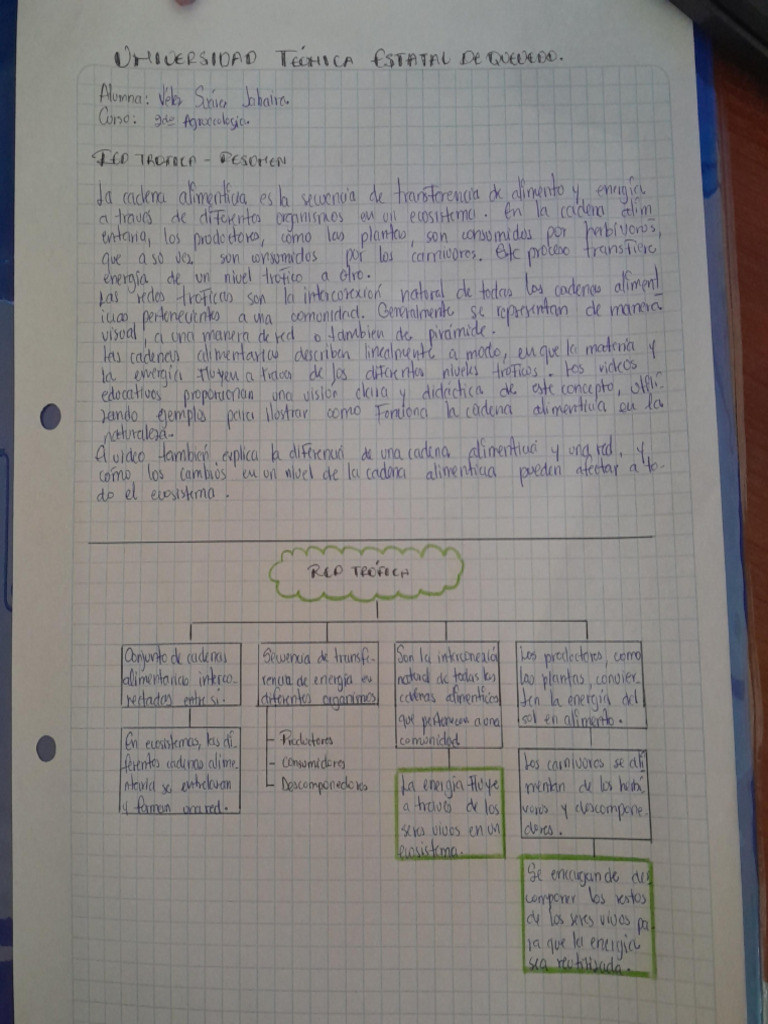 UNIVERSIDAD TÉCNICA ESTATAL DE QUEVEDO.
Alumna: Vélez Jobaira.
Curso: 2do Agroecología.
RED TROFICA - RESUMEN
La cadena alimenticia es la secuencia de transferencia de alimento y energía
a través de diferentes organismos en un ecosistema. En la cadena alim
entaria, los productores, como las plantas, son consumidos por herbívoros,
que a su vez son consumidos por los carnívoros. Este proceso transfiere
energía de un nivel trófico a otro.
Las redes troficas son la interconexión natural de todas las cadenas aliment
icias pertenecientes a una comunidad. Generalmente se representan de manera
visual, a una manera de red o tambien de pirámide.
Las cadenas alimentarias describen linealmente a modo, en que la materia y
la energía fluyen a traves de los diferentes niveles troficos. Los videos
educativos proporcionan una visión clara y didáctica de este concepto, utili
zando ejemplos para ilustrar como funciona la cadena alimenticia en la
naturaleza.
El video también explica la diferencia de una cadena alimenticia y una red, y
cómo los cambios en un nivel de la cadena alimenticia pueden afectar a to-
do el ecosistema.
RED TRÓFICA
Conjunto de cadenas
alimentarias interco-
nectadas entre si.
En ecosistemas, las di-
ferentes cadenas alime-
ntaria se entrelazan
y forman una red.
Secuencia de transfe-
rencia de energía en
diferentes organismos
- Productores
- Consumidores
- Descomponedores
Son la interconexión
natural de todas las
cadenas alimenticias
que pertenecen a una
comunidad
La energía fluye
a través de los
seres vivos en un
ecosistema.
Los productores, como
las plantas, convier-
ten la energía del
sol en alimento.
Los carnívoros se ali
mentan de los herbí
voros y descompone-
dores.
Se encargan de des
componer los restos
de los seres vivos pa
ra que la energía
sea reutilizada.